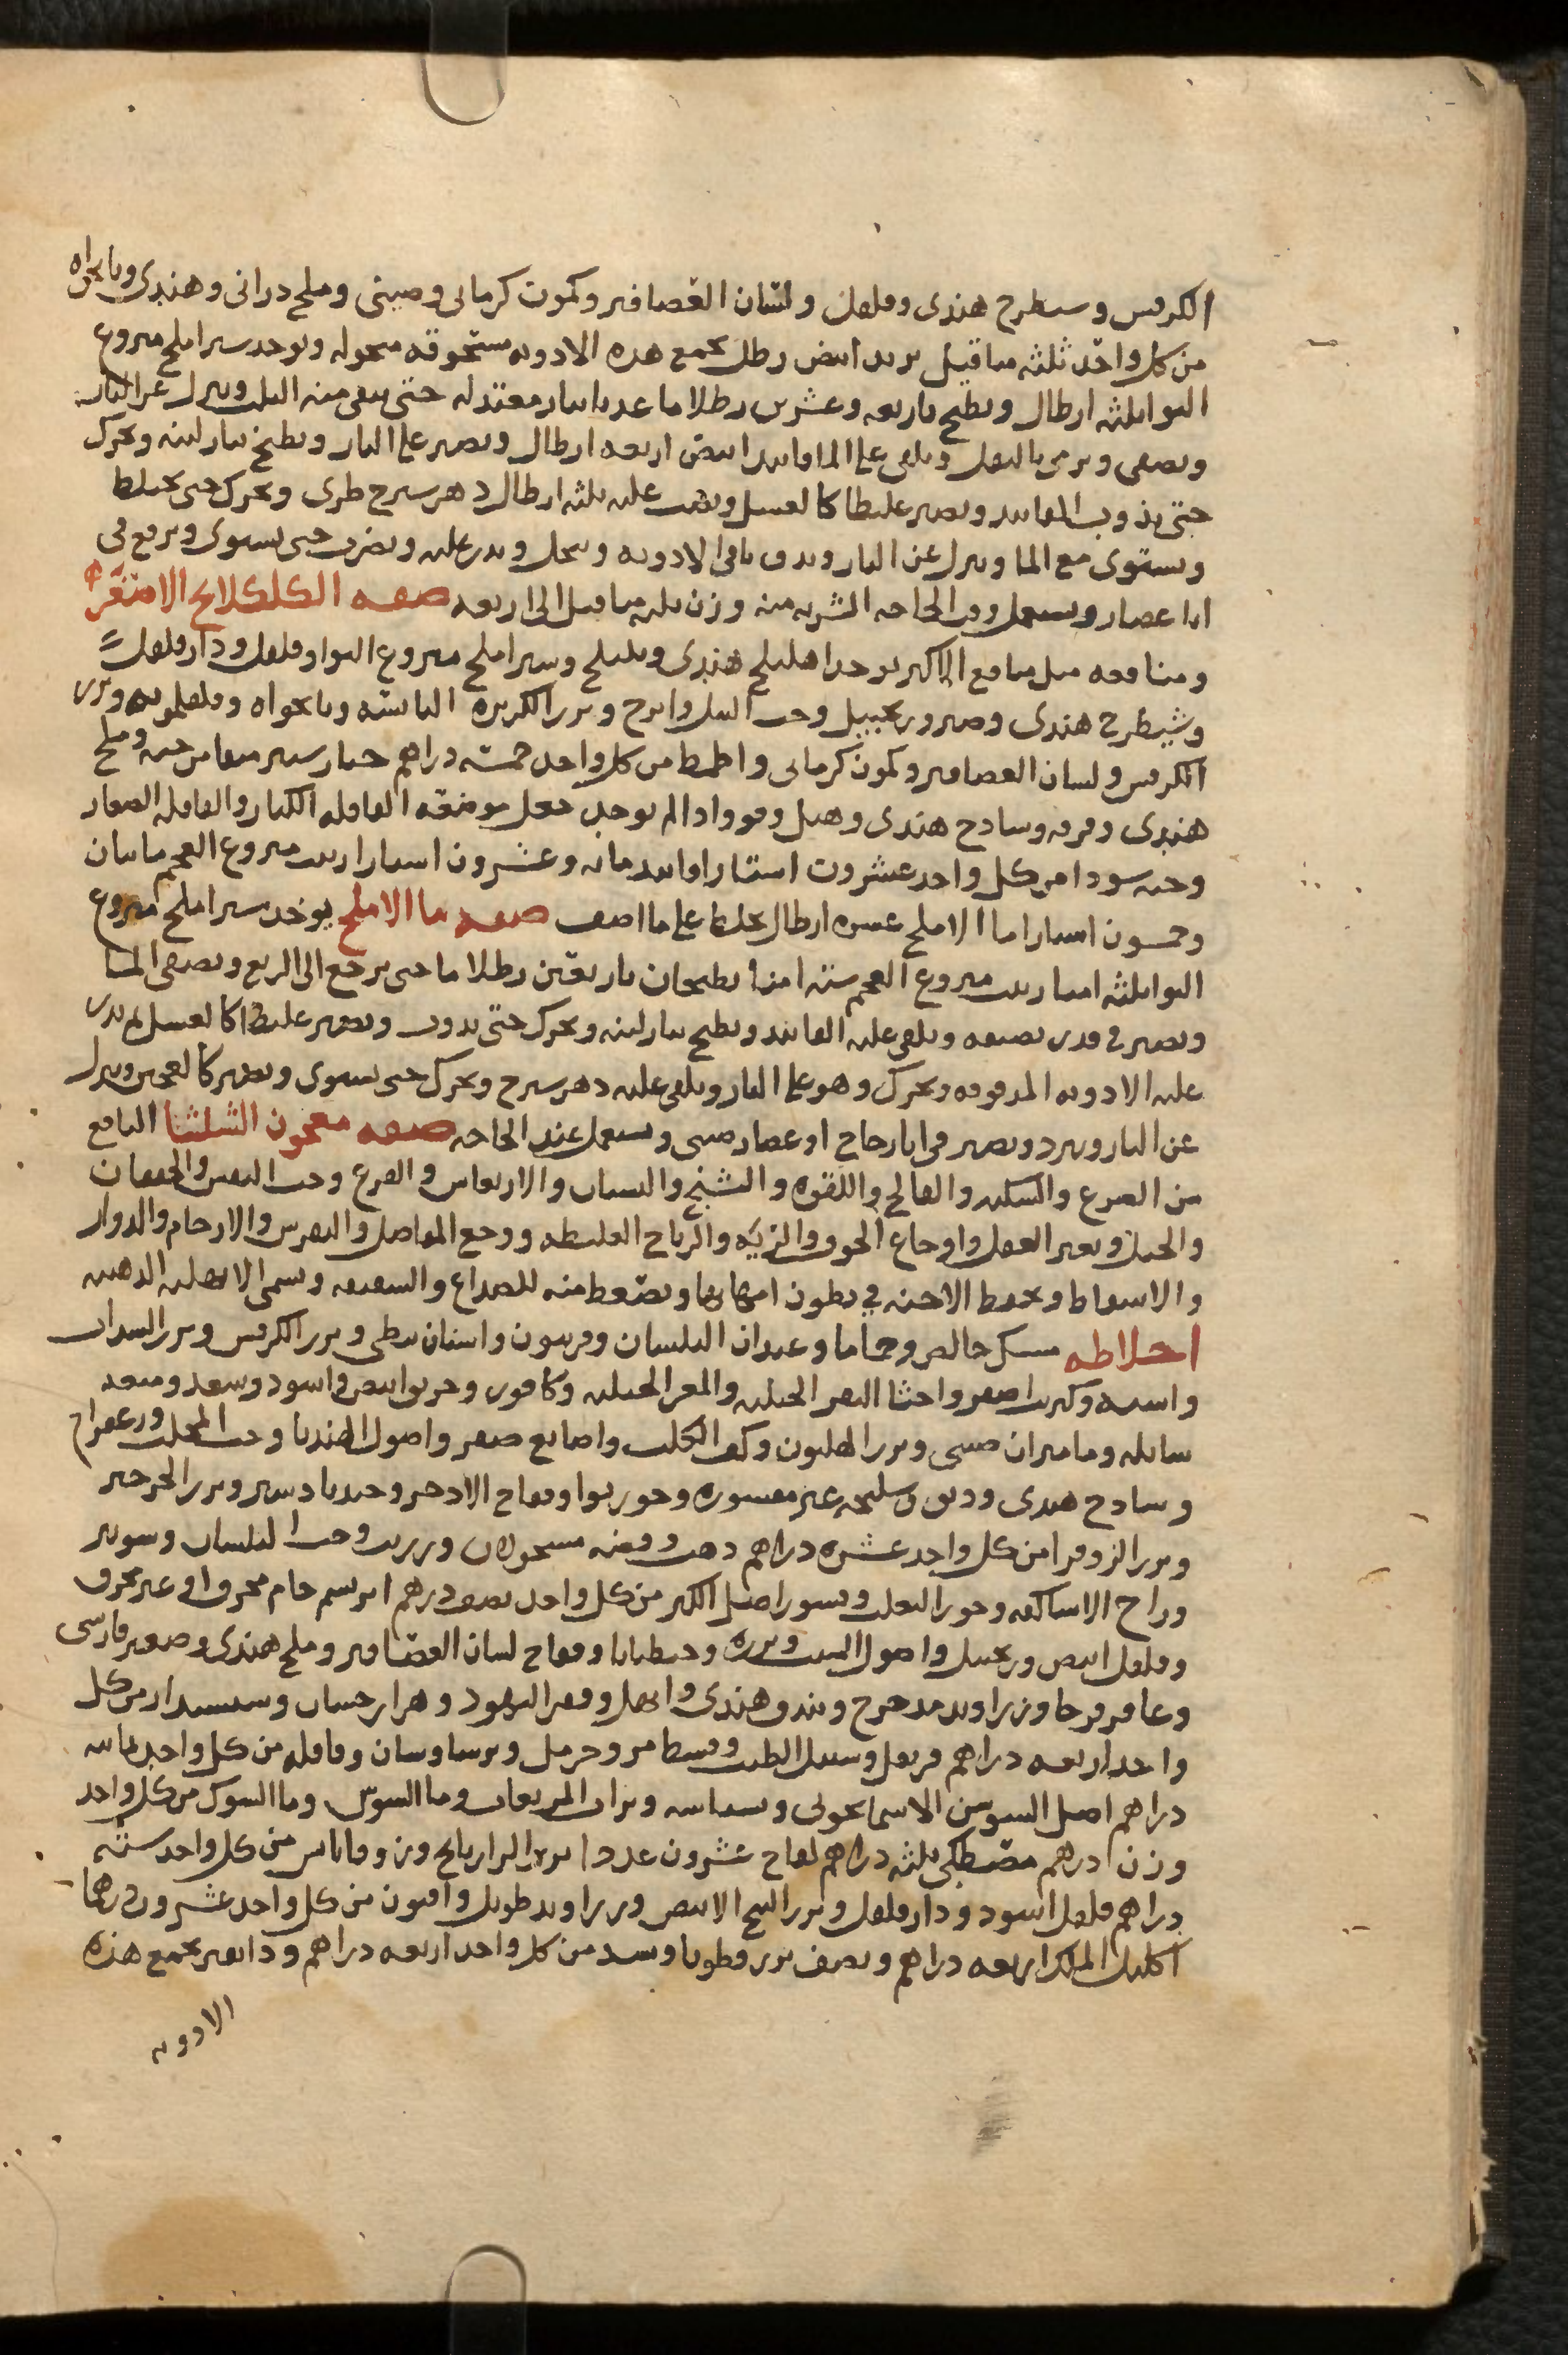 الكرفس وشيطرج هندى وفلفل ولسان العصافير وكمون كرمانى وصينى وملح درانى وهندى ونانخواه
من كل واحد ثلثه مثاقيل تربد ابيض رطل يجمع هذه الادويه مسحوقه منخوله ويوخذ شير املج منزوع
النوا ثلثه ارطال ويطبخ باربعه وعشرين رطلا ما عذبا بنار معتدله حتى يبقى منه الثلث وينزل عن النار
ويصفى ويرمى بالثفل ويلقى على الما فانيذ ابيض اربعه ارطال ويصير على النار ويطبخ بنار لينه ويحرك
حتى يذوب الفانيذ ويصير غليظا كالعسل ويصب عليه ثلثه ارطال دهن شيرج طرى ويحرك حتى يختلط
ويستوى مع الما وينزل عن النار ويدق باقى الادويه وينخل ويذر عليه ويضرب حتى يستوى ويرفع فى
انا غضار ويستعمل وقت الحاجه الشربه منه وزن ثلثه مثاقيل الى اربعه صفه الكلكلانج الاصغر
ومنافعه مثل منافع الاكبر يوخذ اهليلج هندى وبليلج وشير املج منزوع النوا وفلفل ودار فلفل
وشيطرج هندى وصبر وزنجبيل وحب النيل وابرنج وبزر الكزبره اليابسه ونانخواه وفلفلمويه وبزر
الكرفس ولسان العصافير وكمون كرمانى من كل واحد خمسه دراهم خيار شنبر منقا من حبه وملح
هندى وقرفه وساذج هندى وهيل وقوو اذا لم يوجد جعل موضعه القاقله الكبار والقاقله الصغار
وحبه سودا من كل واحد عشرون استارا فانيذ مائه وعشرون استارا زبيب منزوع العجم مائتان
وخمسون استارا ما الاملج عشره ارطال يخلط على ما اصف صفه ما الاملج يوخذ شير املج منزوع
النوا ثلثه امنا زبيب منزوع العجم سته امنا يطبخان باربعين رطلا ما حتى يرجع الى الربع ويصفى الما
ويصير فى قدر نضيفه ويلقى عليه الفانيذ ويطبخ بنار لينه ويحرك حتى يذوب ويصير غليظا كالعسل ثم يذر
عليه الادويه المدقوقه ويحرك وهو على النار ويلقى عليه دهن شيرج ويحرك حتى يستوى ويصير كالعجين وينزل
عن النار ويبرد ويصير فى انا زجاج او غضار صينى ويستعمل عند الحاجه صفه معجون الشلثا النافع
من الصرع والسكته والفالج واللقوه والتشنج والنسيان والارتعاش والفزع وحديث النفس والخفقان
والخبل وتغير العقل واوجاع الجوف والريه والرياح الغليظه ووجع المفاصل والنقرس والارحام والدوار
والاسقاط ويحفظ الاجنه فى بطون امهاتها ويتسعط منه للصداع والشقيقه ويسمى
اخلاطه مسك خالص وحماما وعيدان البلسان وفربيون واشنان نبطى وبزر الكرفس وبزر السداب
واشنه وكبريت اصفر واخثا البقر الجبليه والمعز الجبليه وكافور وخربق ابيض واسود وسعد وميعه
سايله وماميران صينى وبزر الهليون وكف الكلب واصابع صفر واصول الهندبا وحب المحلب وزعفران
وساذج هندى ودبق وسليخه غير مقشوره وجوزبوا وفقاح الاذخر وجندبادستر وبزر الجرجير
وبزر الزوفرا من كل واحد عشره دراهم ذهب وفضه مسحولان وزرنب وحب البلسان وشونيز
وزاج الاساكفه وخور الثعلب وقشور اصل الكبر من كل واحد نصف درهم ابريسم خام محرق او غير محرق
وفلفل ابيض وزنجبيل واصول الشبت وبزره وجنطيانا وفقاح لسان العصافير وملح هندى وصعتر فارسى
وعاقرقرحا وزراوند مدحرج وبندق هندى وابهل وقفر اليهود وهزارجشان وسيسبدار من كل
واحد اربعه دراهم قرنفل وسنبل الطيب وقسط مر وحرمل وبرسياوشان وقاقله من كل واحد ثمانيه
دراهم اصل السوسن الاسمانجونى وبسباسه وما السوس وما الشوك من كل واحد
وزن درهم مصطكى ثلثه دراهم لفاح عشرون عددا بزر الرازيانج وزوفا يابس من كل واحد سته
دراهم فلفل اسود ودار فلفل وبزر البنج الابيض وزراوند طويل وافيون من كل واحد عشرون درهما
اكليل الملك اربعه دراهم ونصف بزر قطونا من كل واحد اربعه دراهم ودانقين يجمع هذه
الادويه